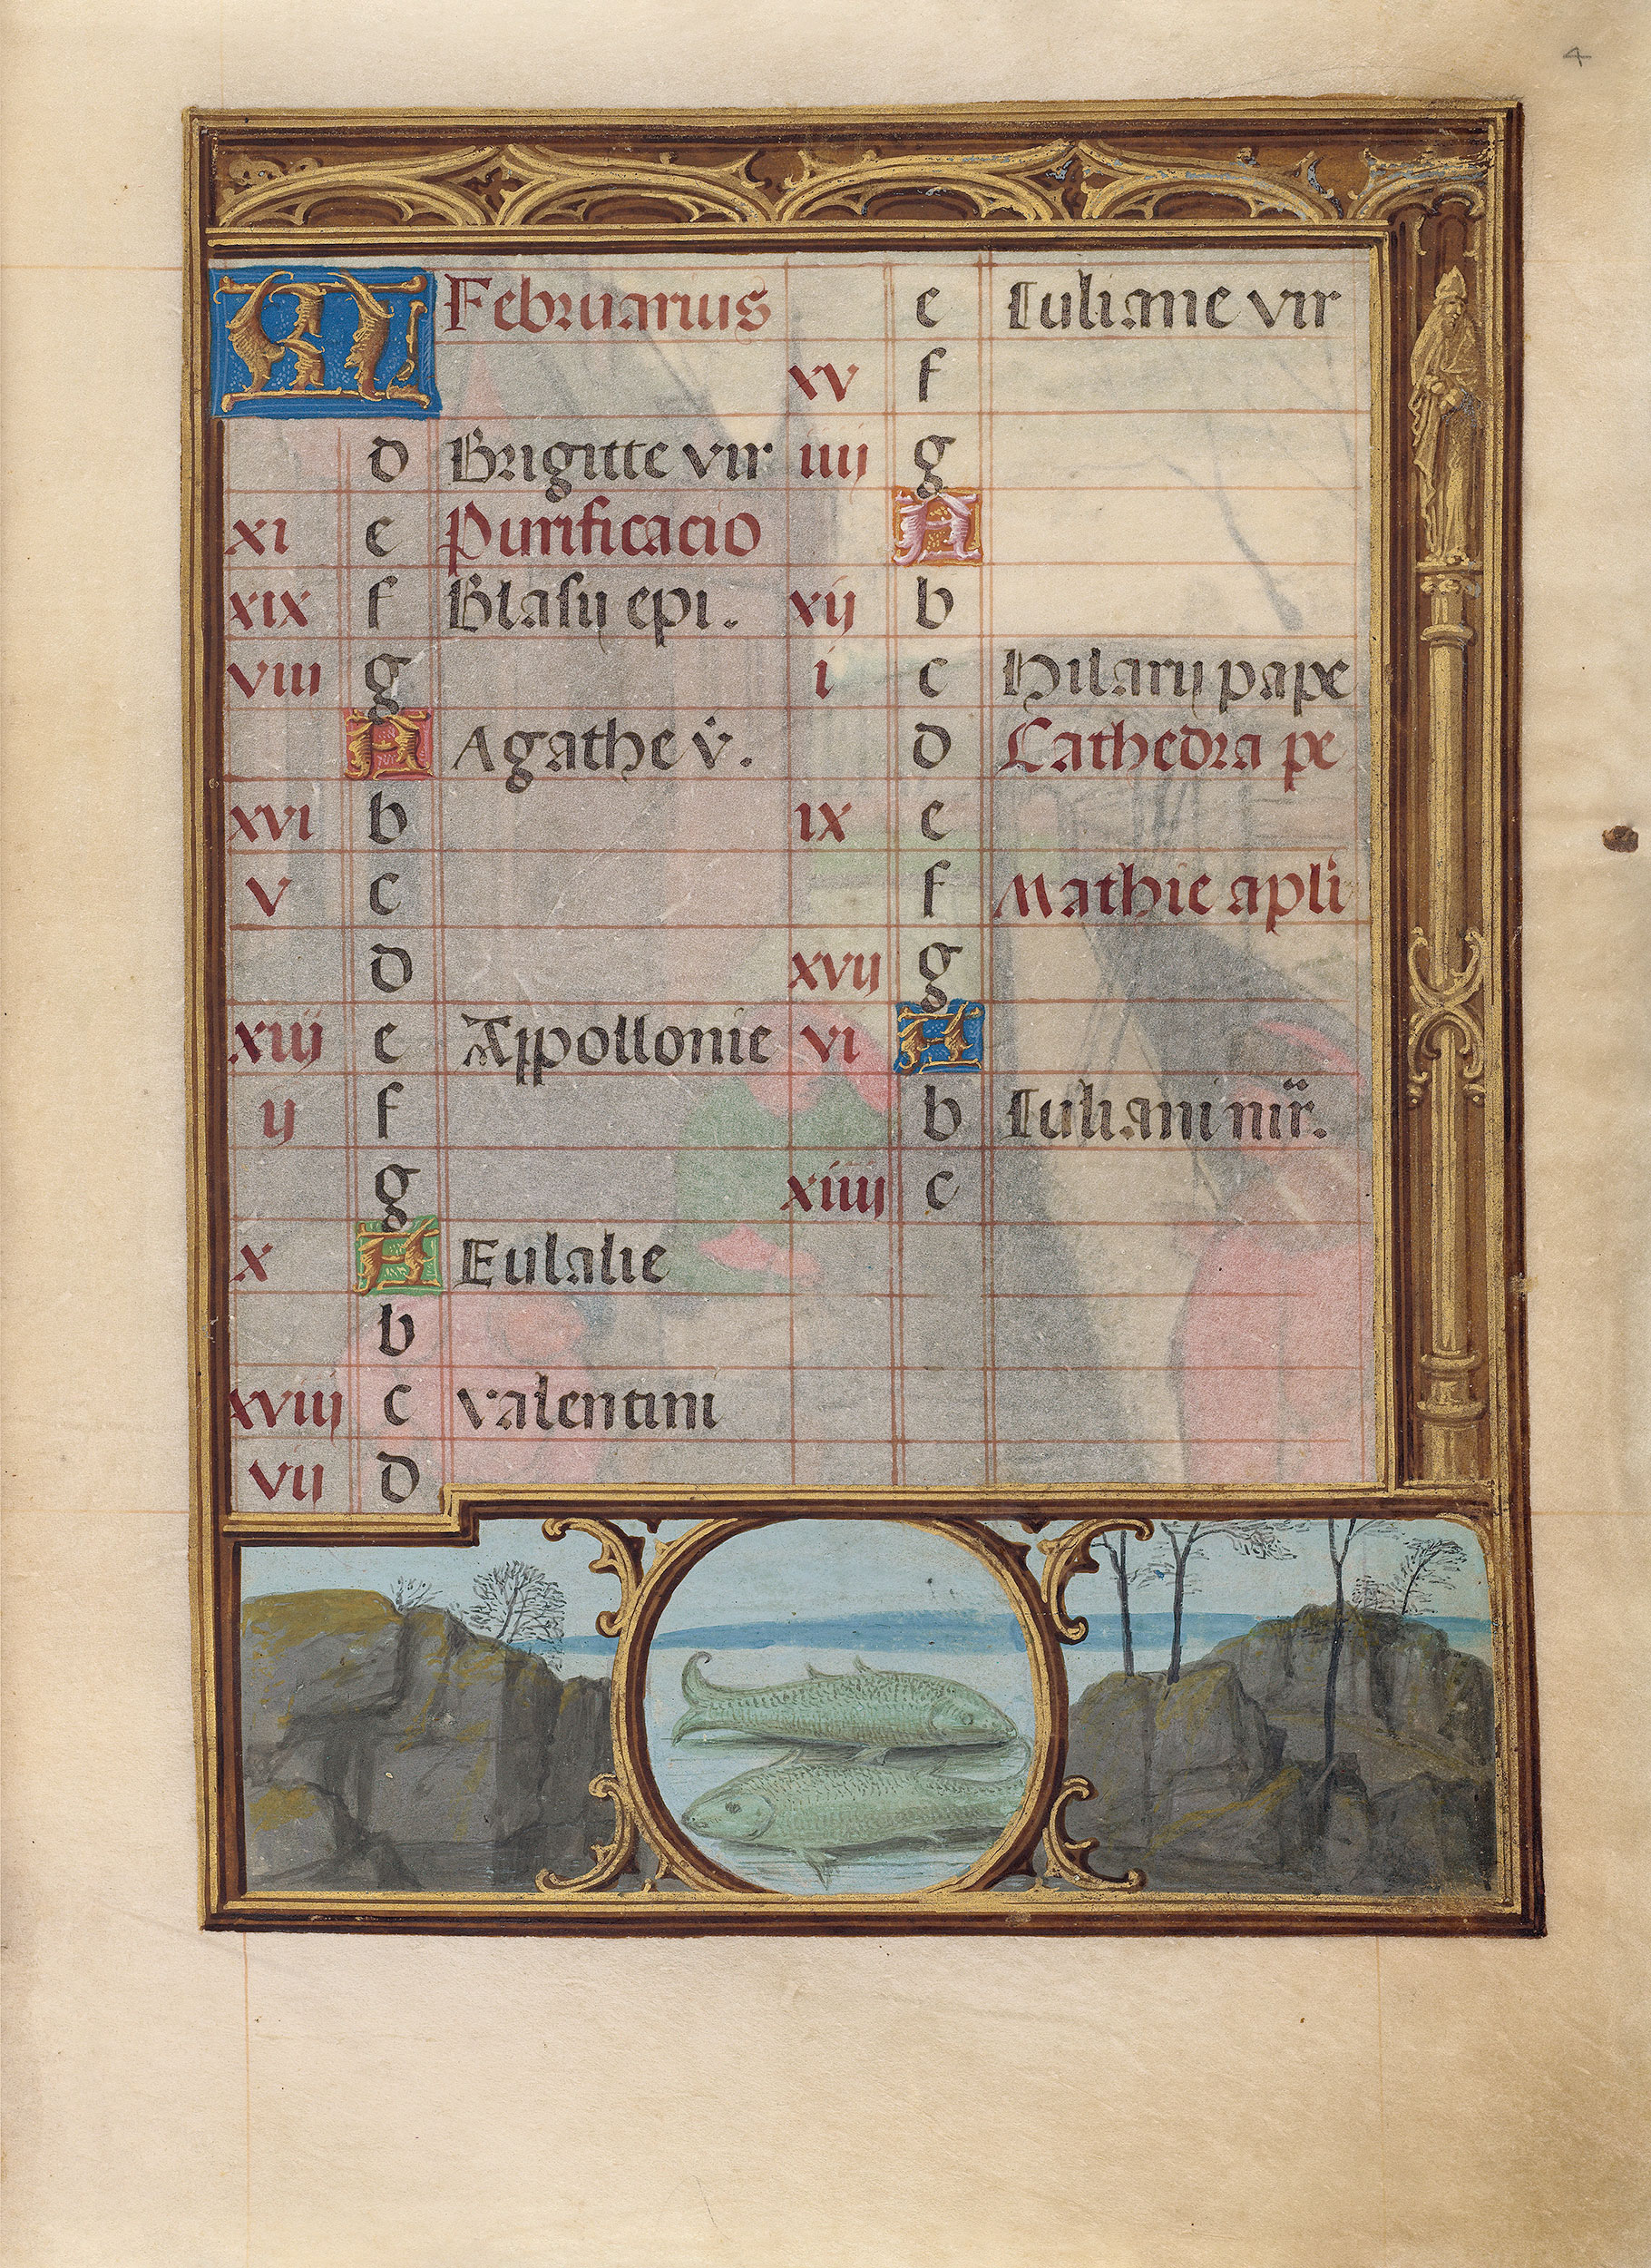 4
KL Februarius
d Brigitte vir
xi e Purificacio
xix f Blasij epi.
viii g
A Agathe v̇.
xvi b
v c
d
xiij e Appollonie
ij f
g
x A Eulalie
b
xviij c Valentini
vij d
e Iuliane vir
xv f
iiij g
A
xij b
i c Hilarij pape
d Cathedra pe
ix e
f Mathie apli
xvij g
vi A
b Iuliani mr̄.
xiiij c